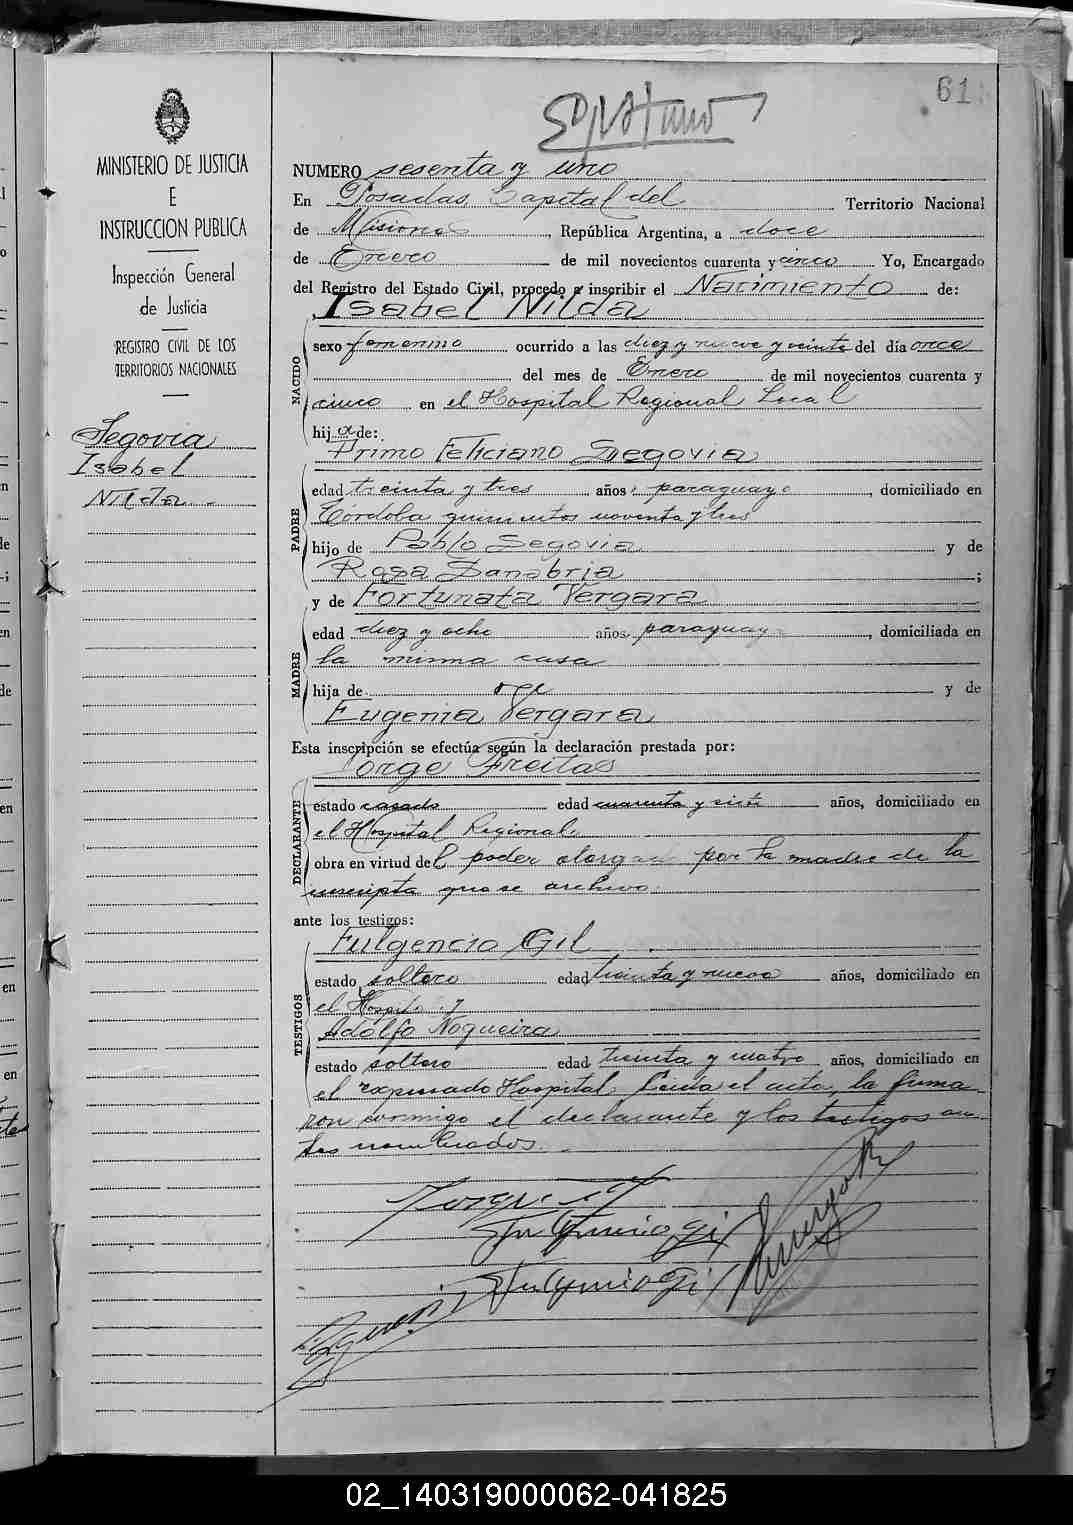 61
NUMERO sesenta y uno
En Posadas, Capital del Territorio Nacional
de Misiones, República Argentina, a doce
de Enero de mil novecientos cuarenta y cinco Yo, Encargado
del Registro del Estado Civil, procedo a inscribir el Nacimiento de:
Isabel Nilda
sexo femenino ocurrido a las diez y nueve y veinte del día once
del mes de Enero de mil novecientos cuarenta y
cinco en el Hospital Regional Local
hija de:
Primo Feliciano Segovia
edad treinta y tres años, paraguayo, domiciliado en
Córdoba quinientos noventa y tres
hijo de Pablo Segovia y de
Rosa Sanabria;
y de Fortunata Vergara
edad diez y ocho años, paraguaya, domiciliada en
la misma casa
hija de y de
Eugenia Vergara
Esta inscripción se efectúa según la declaración prestada por:
Jorge Freitas
estado casado edad cuarenta y siete años, domiciliado en
el Hospital Regional,
obra en virtud del poder otorgado por la madre de la
inscripta que se archiva.
ante los testigos:
Fulgencio Gil
estado soltero edad treinta y nueve años, domiciliado en
el Hospital y
Adolfo Nogueira
estado soltero edad treinta y cuatro años, domiciliado en
el expresado Hospital. Leida el acta, la firma
ron conmigo el declarante y los testigos an
tes nombrados.
NACIDO
PADRE
MADRE
DECLARANTE
TESTIGOS
MINISTERIO DE JUSTICIA
E
INSTRUCCION PUBLICA
Inspección General
de Justicia
REGISTRO CIVIL DE LOS
TERRITORIOS NACIONALES
Segovia
Isabel
Nilda.
Fulgencio Gil
Fulgencio Gil
02_140319000062-041825